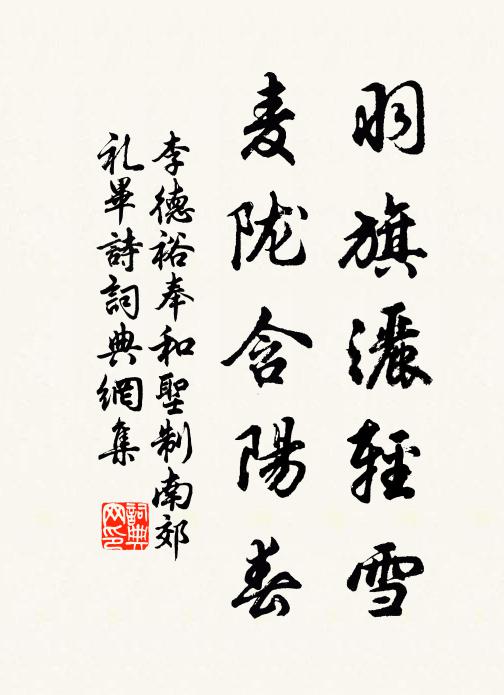 羽旗灑輕雪
麦陇含陽春
李德裕奉和聖制南郊
礼畢詩詞典網集
詞典
网印